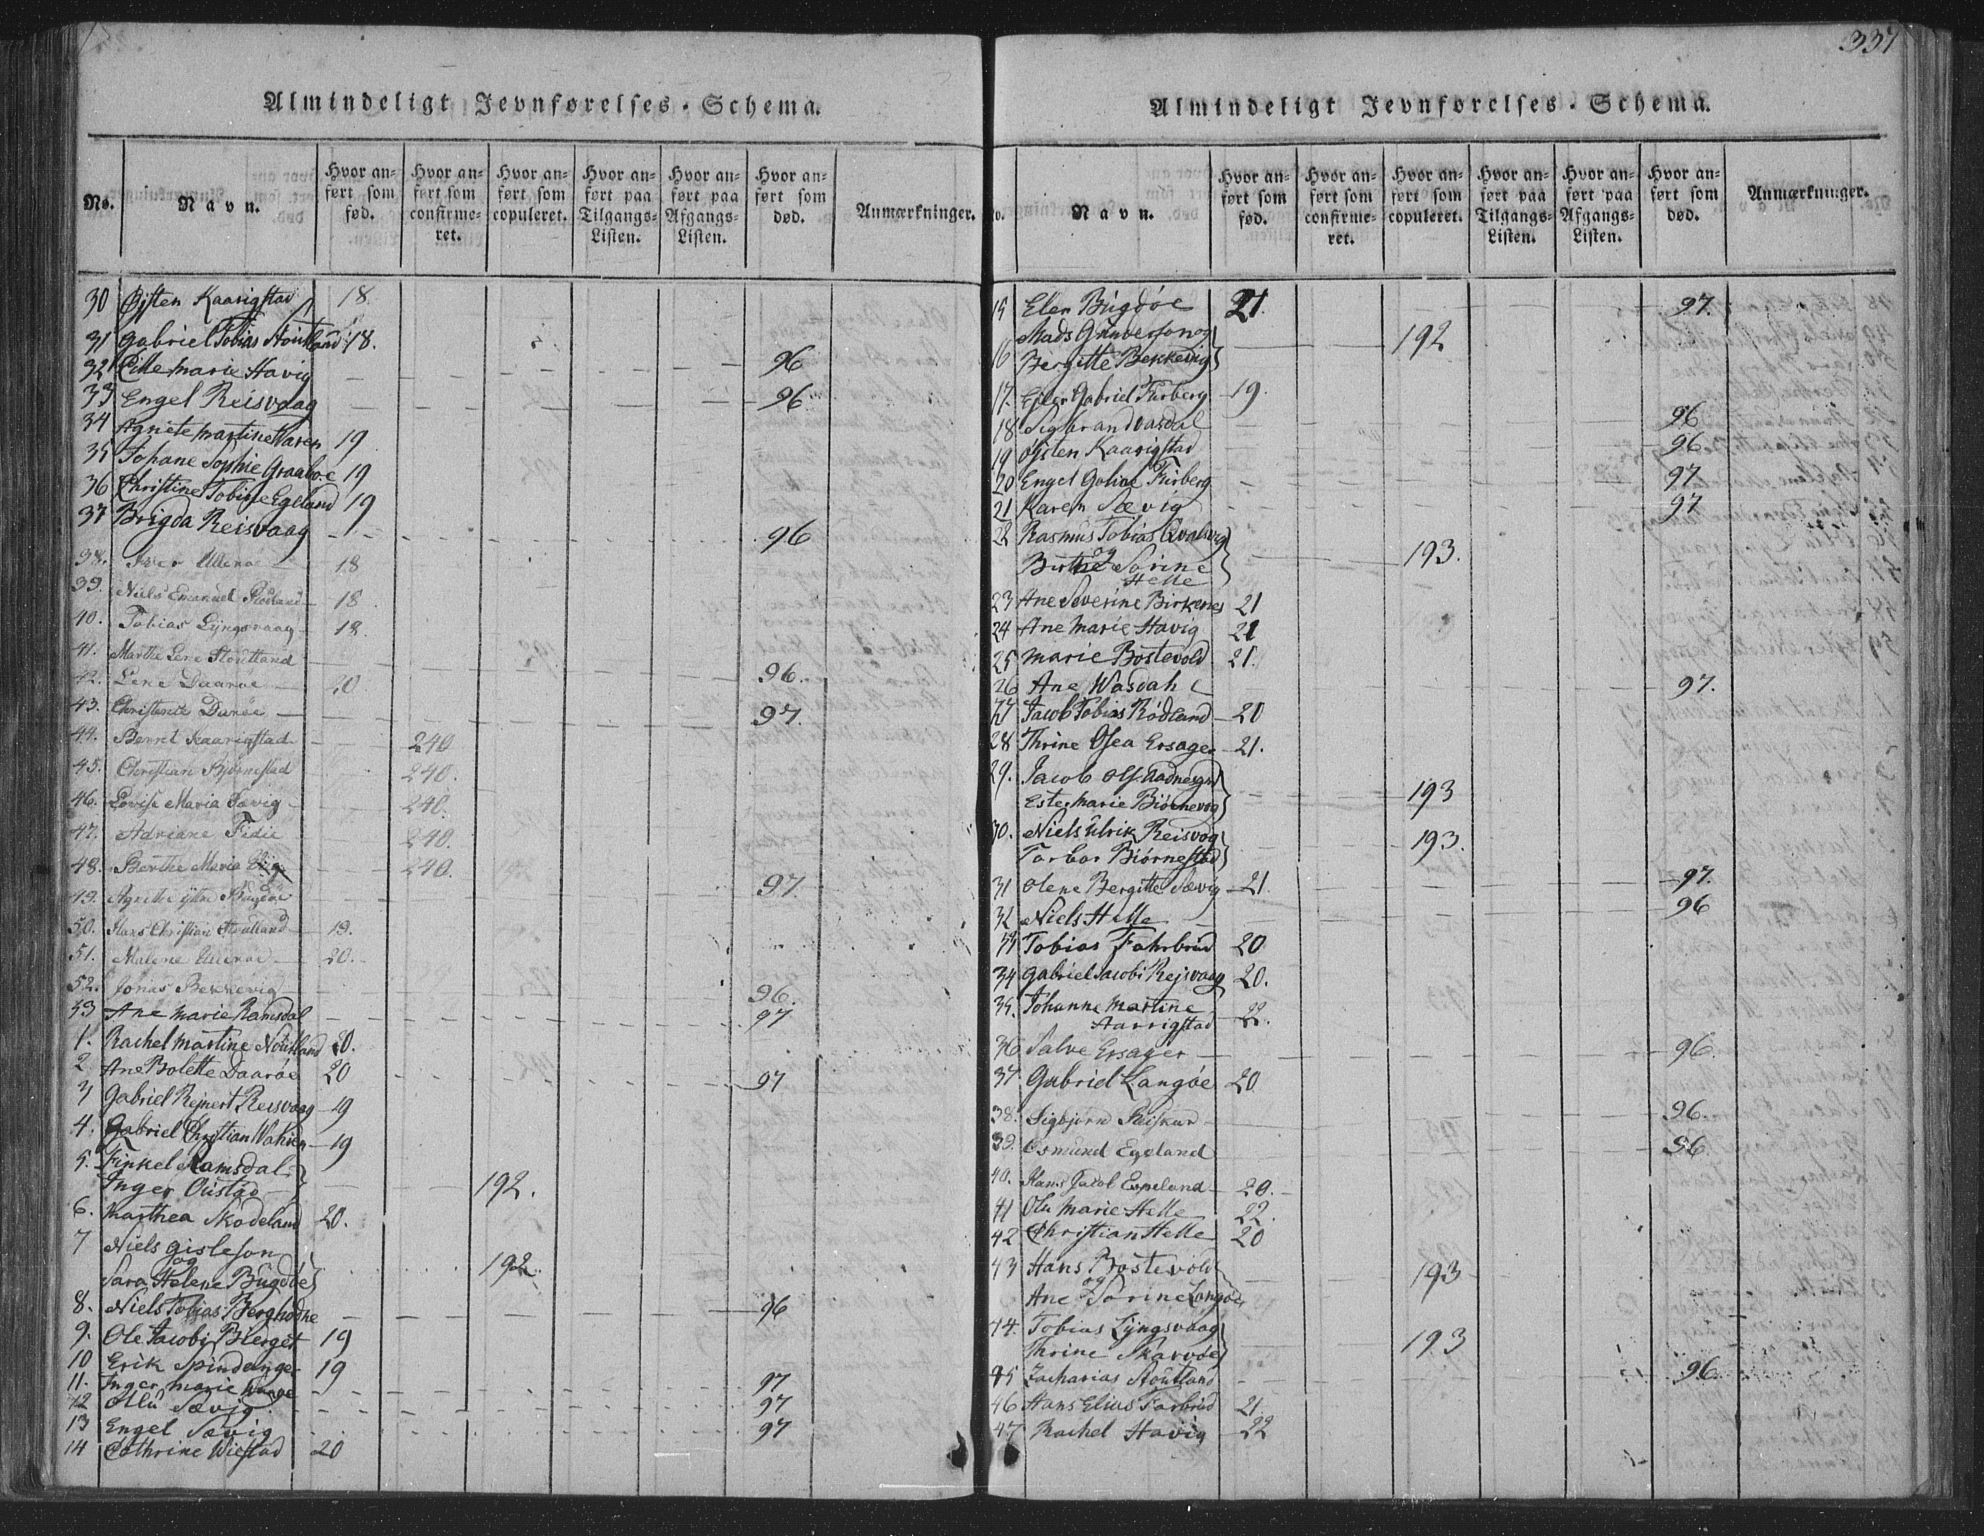 337
Almindeligt Jevnførelses-Schema.
No.
Navn.
Hvor an-
ført som
fød.
Hvor an-
ført som
confirme-
ret.
Hvor an-
ført som
copuleret.
Hvor an-
ført paa
Tilgangs-
Listen.
Hvor an-
ført paa
Afgangs-
Listen.
Hvor an-
ført som
død.
Anmærkninger.
30 Østen Kaarigstad 18.
31 Gabriel Tobias Stoutland 18.
32 marie Havig 96
33 Engel Reisvaag 96
34 Agnete martine 19
35 Johane Sophie Graaboe 19
36 Christine Egeland 19
37 Brigda Reisvaag 96
38. Iver Ullerøe 18
39. Niels Emanuel Rødland 18
40. Tobias Lyngsvaag 18.
41. Marthe Lene Stoutland 96.
42. Lene Daarøe 20
43. Christense Darøe 97.
44. Berret Kaarigstad 240
45. Christian Bjørnestad 240.
46. Lovise Maria Sævig 240.
47. Adriane Fidie 240.
48. Berthe Maria 240.
49. Agnethe Bugdøe 97.
50. Hans Christian Stoutland 19.
51. Malene Ullerøe 20.
52. Jonas Bekkevig 96.
53 Ane marie Ramsdal 97
1. Rachel martine Stoutland 20.
2 Ane Bolette Daarøe 20 97
3 Gabriel Rejnert Reisvaag 19
4. Gabriel Christian 19
5. Finkel Ramsdal
Inger Oustad 192.
6. Marthea Skodeland 20.
7 Niels Gisleson
og
Sara Helene Bugdøe 192
8. Niels Tobias 96
9. Ole Jacobi Bierget 19
10 Erik Spindanger 19
11. Inger marie 97
12 Ollu Sævig 97
13 Engel Sævig 97
14 Cathrine Wiestad 20
Almindeligt Jevnførelses-Schema.
No.
Navn.
Hvor an-
ført som
fød.
Hvor an-
ført som
confirme-
ret.
Hvor an-
ført som
copuleret.
Hvor an-
ført paa
Tilgangs-
Listen.
Hvor an-
ført paa
Afgangs-
Listen.
Hvor an-
ført som
død.
Anmærkninger.
15 Elen Bugdøe 21. 97.
Mads Gunderson og
16 Bergitte Bekkevig 192
17. Ejler Gabriel Furberg 19.
18 Sigbrand 96
19 Østen Kaarigstad 96
20 Engel Furberg 97
21 Karen Sævig 97
22 Rasmus Tobias
og
Birthe Sorine 193.
Helle
23 Ane Severine Birkenes 21
24 Ane Marie Havig 21
25 marie Bostevold 21.
26 Ane Wasdahl 97.
27 Jacob Tobias Rødland 20
28 Thrine Osea Ersager 21.
29. Jacob
Ester Marie Biørnevog 193
30. Niels Ulrik Reisvog
Torbor Biørnestad 193.
31 Olene Bergitte Sævig 21. 97.
32 Niels Helle 96
33 Tobias Fahrbrud 20
34 Gabriel Jacobi Rejsvaag 20.
35. Johanne Martine
Aarrigstad 22.
36 Salve Ersager 96.
37 Gabriel Langøe 20
38. Sigbjørn 96.
39. Osmund Egeland 96.
40. Hans Jacob Espeland 20.
41 Olu Marie Helle 22.
42 Christian Helle 20
43 Hans Bostevold
og
Ane Dorine Langøe 193
44. Tobias Lyngsvaag
Thrine Skarvøe 193
45 Zacharias Stoutland 96.
46 Hans Elius Farbrud 21.
47 Rachel Havig 22